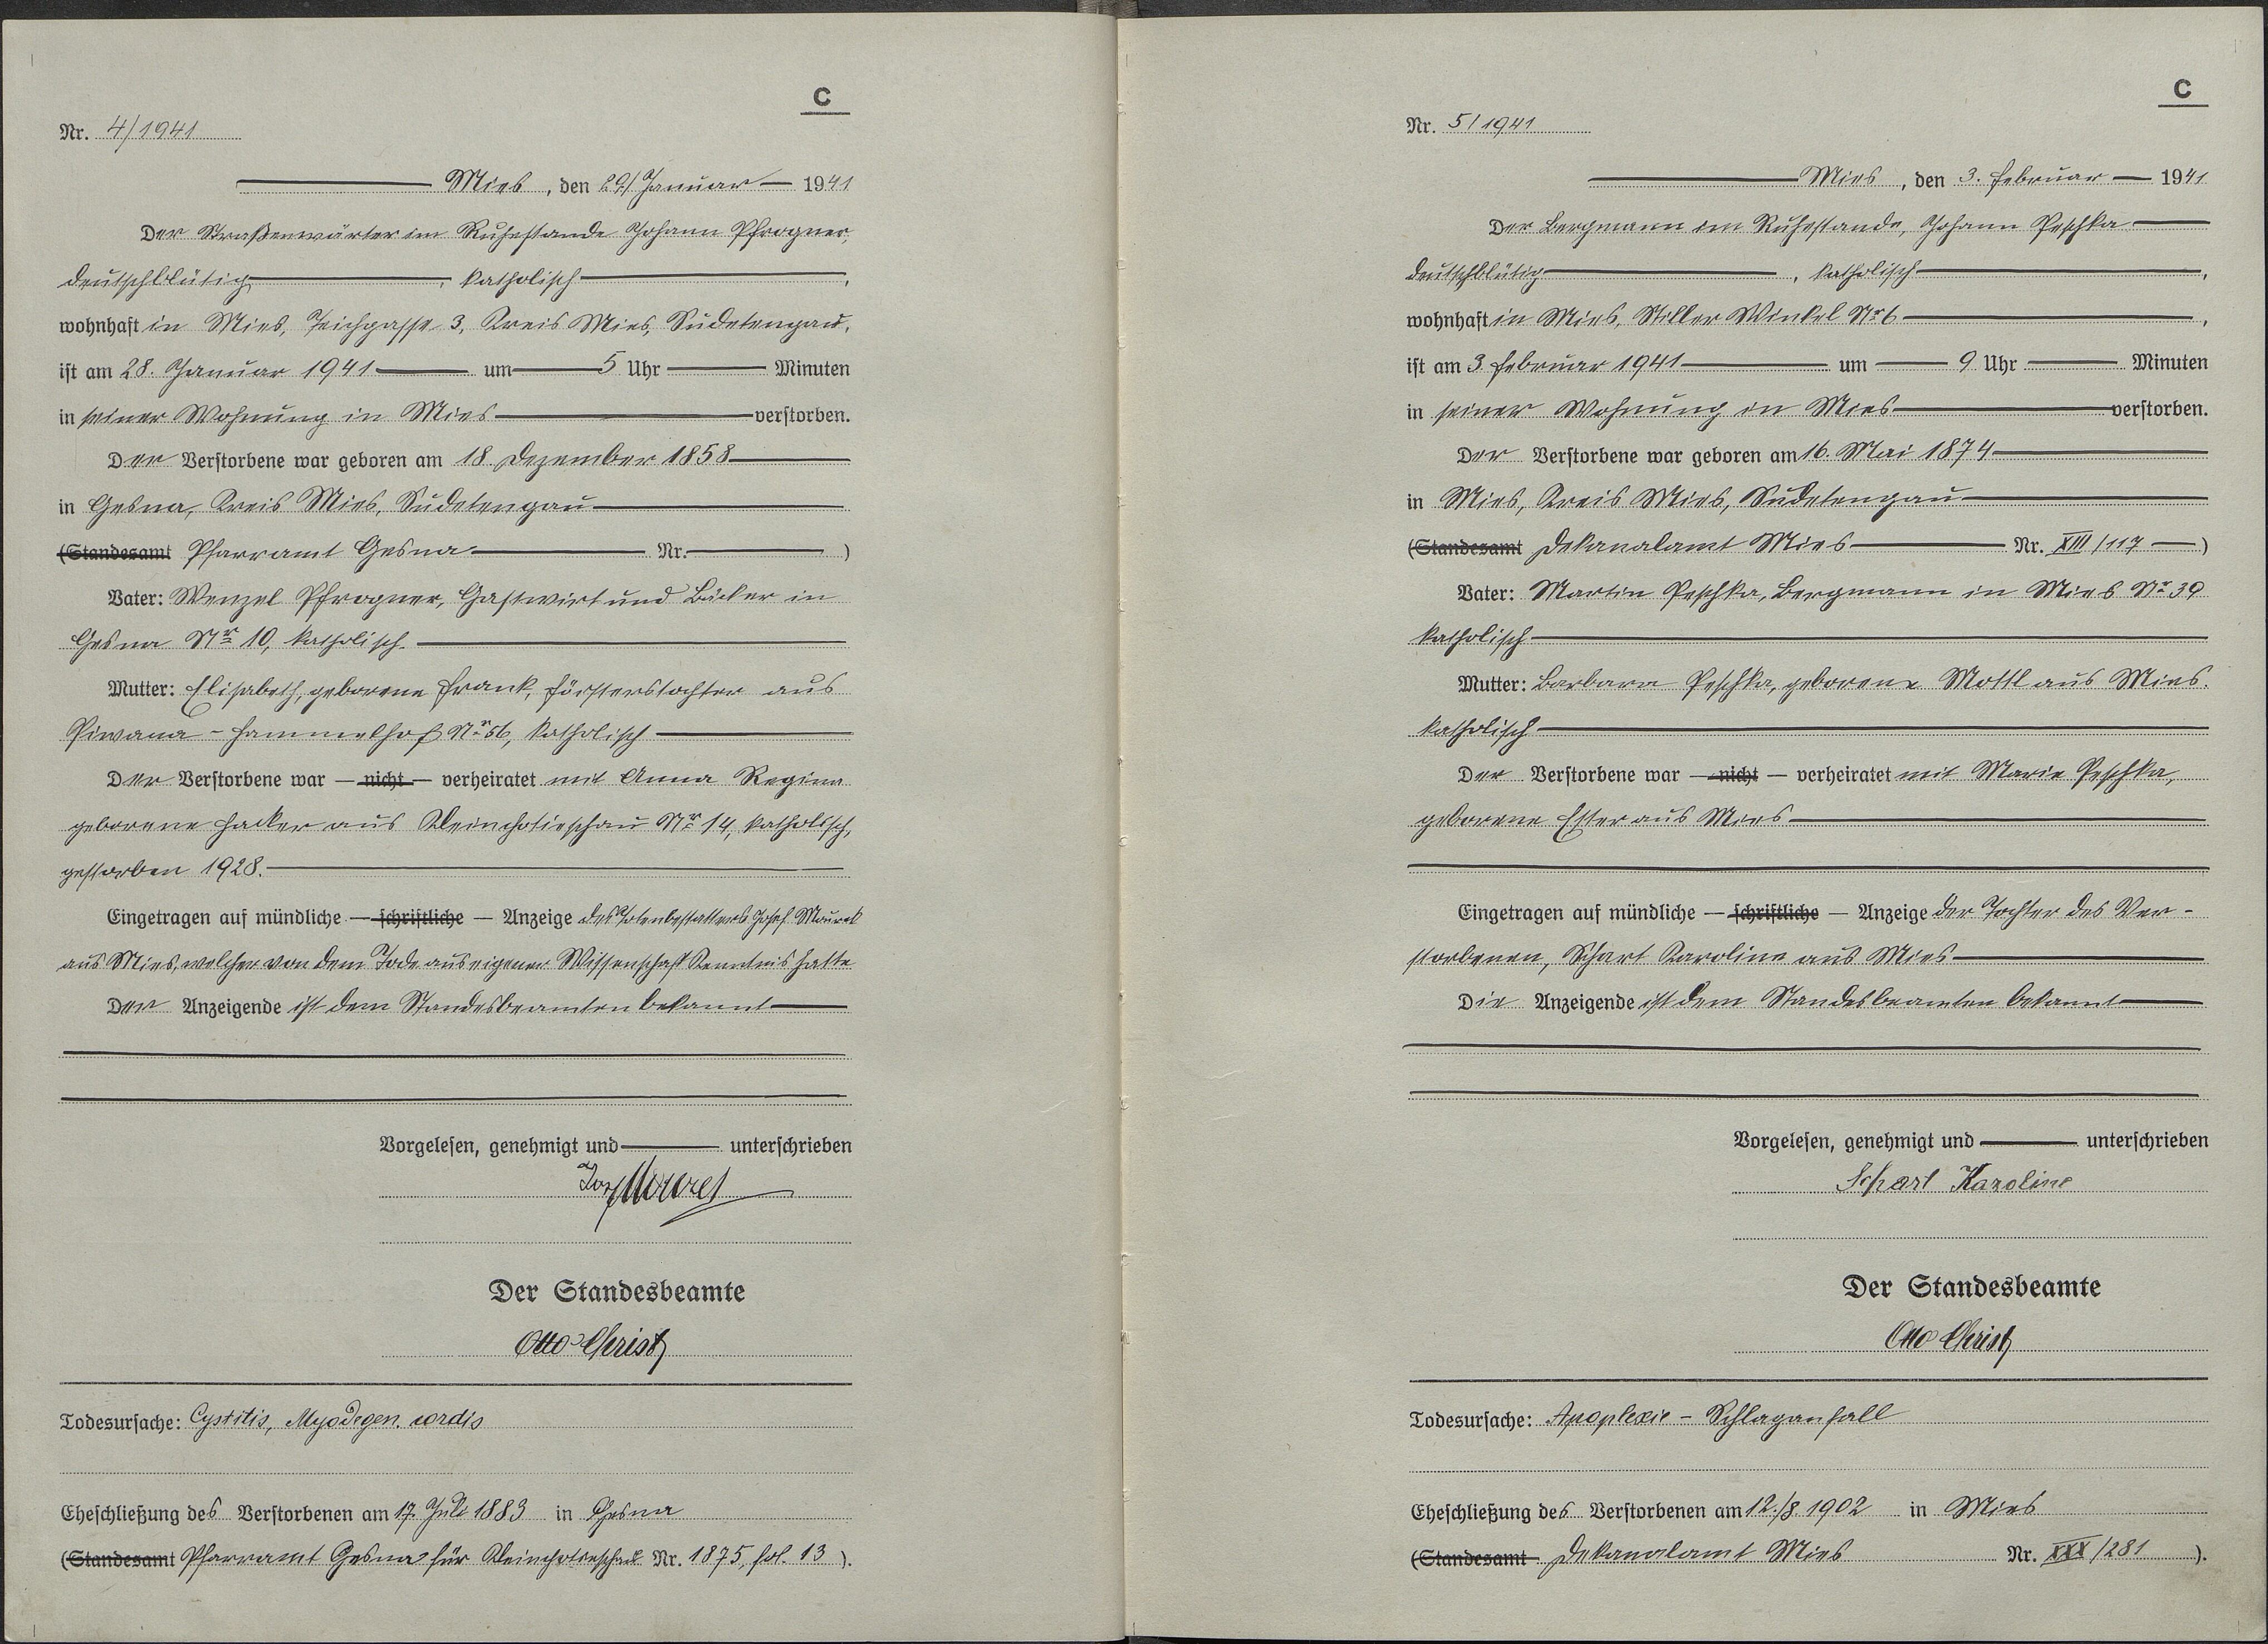 C
Nr. 4/1941
Mies, den 29. Januar 1941
Der Straßenwärter im Ruhestande Johann Pfrogner,
deutschblütig, katholisch,
wohnhaft in Mies, Teichgasse 3, Kreis Mies, Sudetengau,
ist am 28. Januar 1941 um 5 Uhr Minuten
in seiner Wohnung in Mies verstorben.
Der Verstorbene war geboren am 18. Dezember 1858
in Gesna, Kreis Mies, Sudetengau
(Standesamt Pfarramt Gesna Nr. )
Vater: Wenzel Pfrogner, Gastwirt und Bäcker in
Gesna Nr 10, katholisch
Mutter: Elisabeth, geborene Frank, Försterstochter aus
Piwana - Hammelhof Nr 56, katholisch
Der Verstorbene war — nicht — verheiratet mit Anna Regina
geborene Hacker aus Kleinchotieschau Nr 14, katholisch,
gestorben 1928.
Eingetragen auf mündliche — schriftliche — Anzeige des Totenbestatters Josef
aus Mies, welcher von dem Tode aus eigener Wissenschaft Kenntnis hatte
Der Anzeigende ist dem Standesbeamten bekannt
Vorgelesen, genehmigt und unterschrieben
Der Standesbeamte
Otto Christ
Todesursache: Cystitis, Myodegen. cordis
Eheschließung des Verstorbenen am 17. Juli 1883 in Gesna
(Standesamt Pfarramt Gesna für Kleinchotieschau Nr. 1875, fol. 13 ).
C
Nr. 5/1941
Mies, den 3. Februar 1941
Der Bergmann im Ruhestande, Johann Peschka
deutschblütig, katholisch,
wohnhaft in Mies, Stiller Winkel Nr 6,
ist am 3. Februar 1941 um 9 Uhr Minuten
in seiner Wohnung in Mies verstorben.
Der Verstorbene war geboren am 16. Mai 1874
in Mies, Kreis Mies, Sudetengau
(Standesamt Dekanalamt Mies Nr. XIII/117 )
Vater: Martin Peschka, Bergmann in Mies Nr 39
katholisch
Mutter: Barbara Peschka, geborene Mottl aus Mies.
katholisch
Der Verstorbene war — nicht — verheiratet mit Marie Peschka,
geborene Etter aus Mies
Eingetragen auf mündliche — schriftliche — Anzeige der Tochter des Ver-
storbenen, Scharl Karoline aus Mies
Die Anzeigende ist dem Standesbeamten bekannt
Vorgelesen, genehmigt und unterschrieben
Scharl Karoline
Der Standesbeamte
Otto Christ
Todesursache: Apoplexie - Schlaganfall
Eheschließung des Verstorbenen am 12./8. 1902 in Mies
(Standesamt Dekanalamt Mies Nr. XXX/281 ).